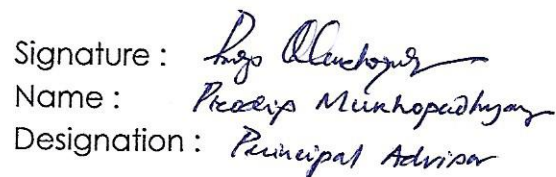 Signature :
Name : Pradip Mukhopadhyay
Designation : Principal Advisor